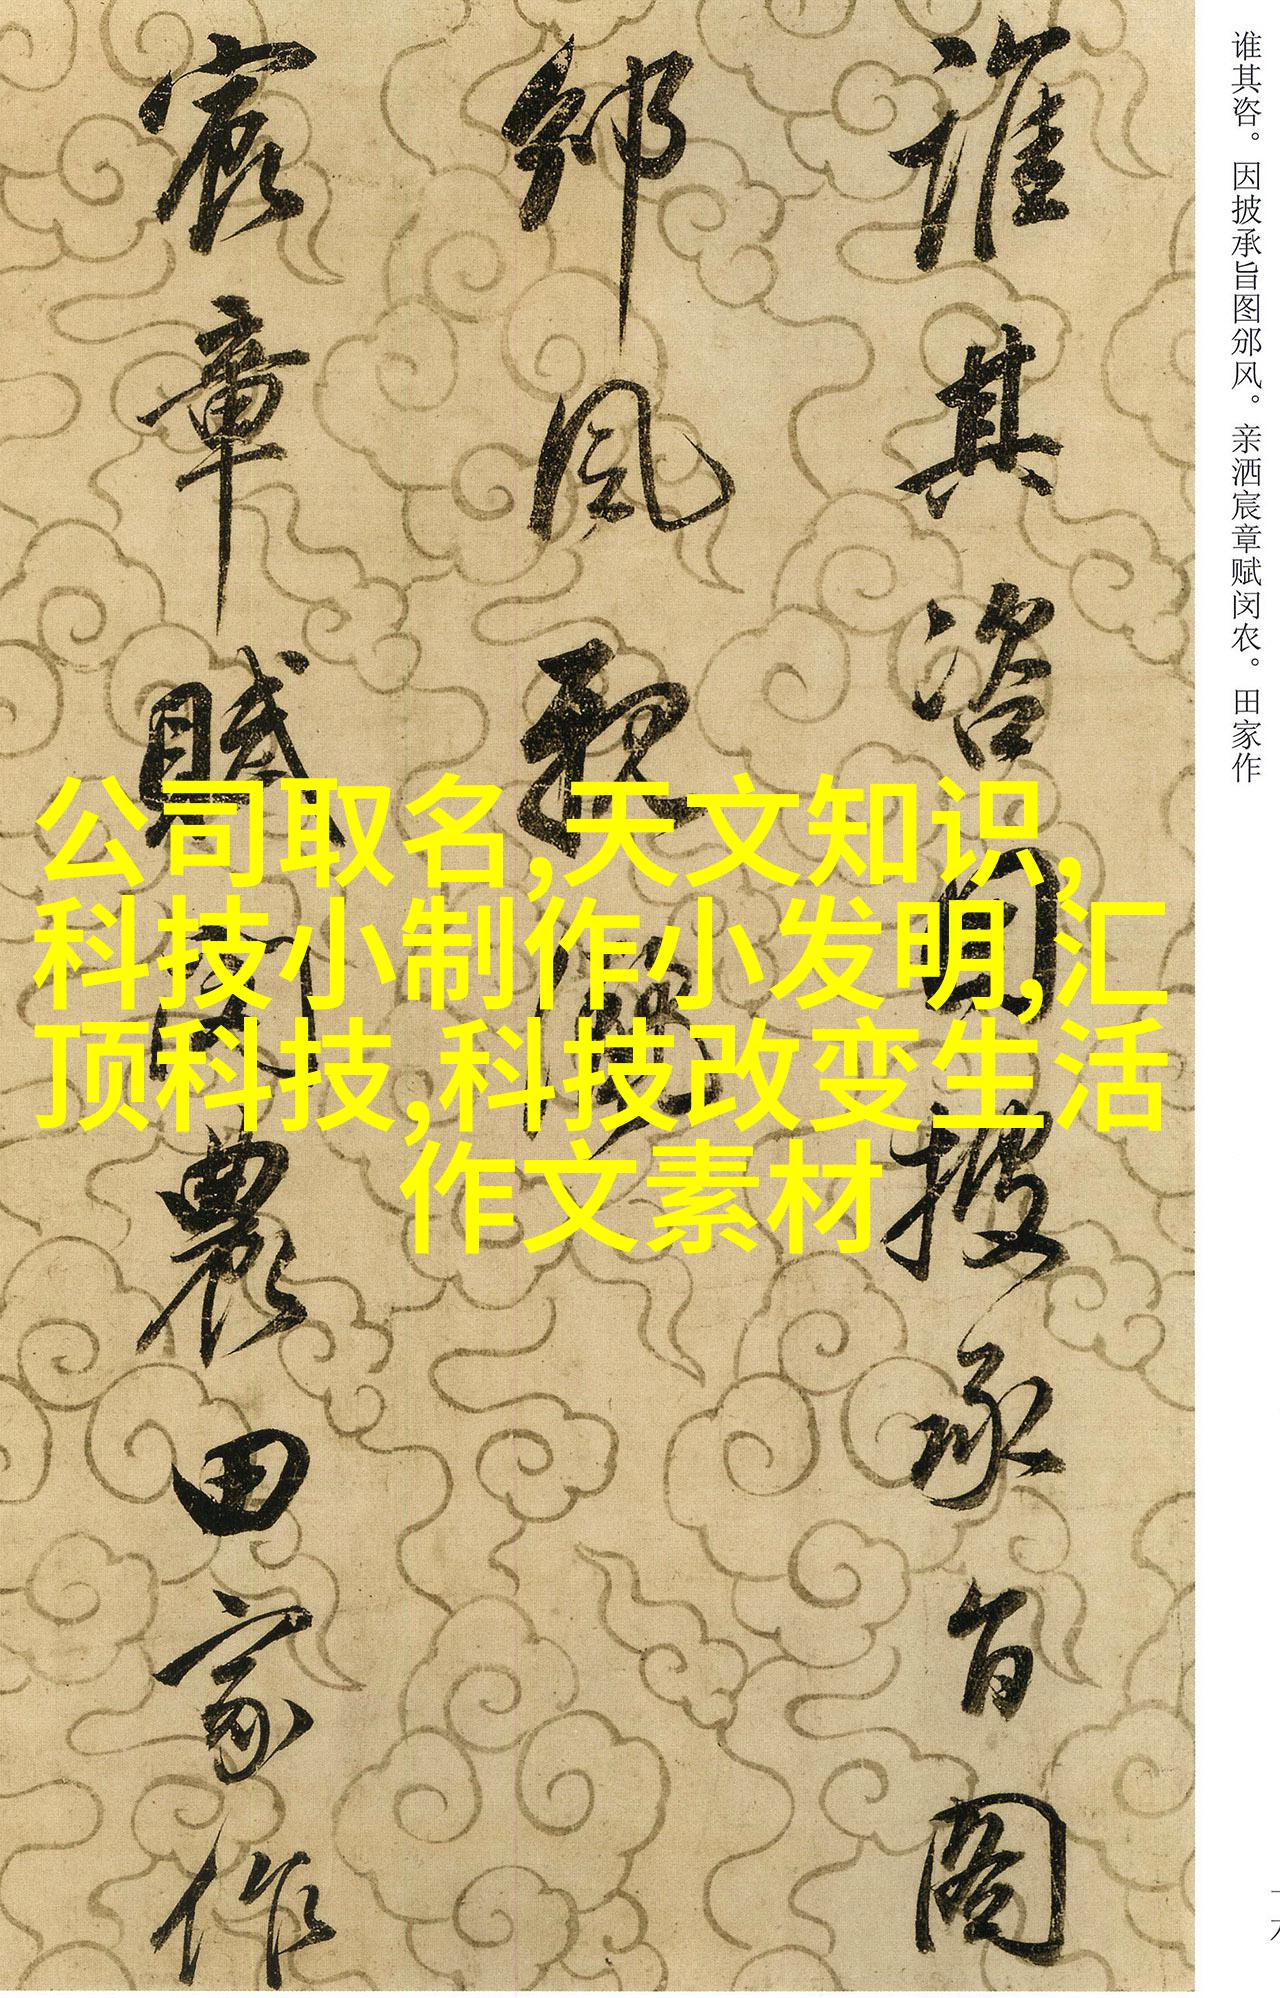 谁其咨。因披承旨图邠风。亲洒宸章赋闵农。田家作
誰其咨因披承旨圖
邠風親灑
宸章賦閔農田家作
公司取名,天文知识,
科技小制作小发明,汇
顶科技,科技改变生活
作文素材